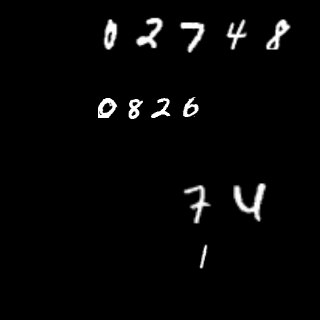 02748
0826
74
1